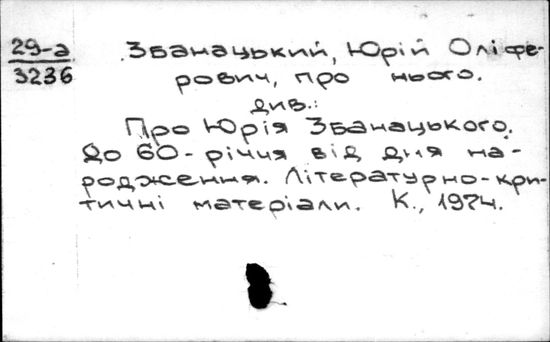 29-а
3236
Збанацький, Юрій Оліфе-
рович, про нього.
див.:
Про Юрія Збанацького.
До 60-річчя від дня на-
родження. Літературно-кри-
тичні матеріали. К., 1974.